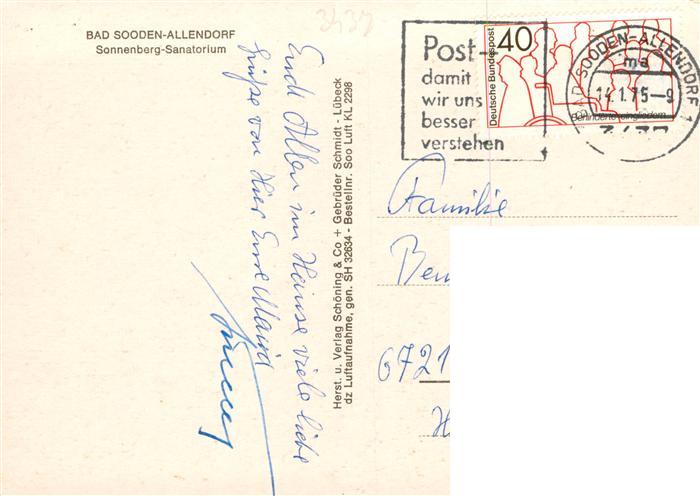 BAD SOODEN-ALLENDORF
Sonnenberg-Sanatorium
3437
Euch Allen im Hause viele liebe
Grüße von Hier Eure Maria
Herst. u. Verlag Schöning & Co + Gebrüder Schmidt - Lübeck
dz Luftaufnahme, gen. SH 32634 - Bestellnr. Soo Luft KL 2298
Post-
damit
wir uns
besser
verstehen
40
Deutsche Bundespost
Behinderte eingliedern
BAD SOODEN-ALLENDORF 1
ma
14.1.75-9
3437
Familie
6721